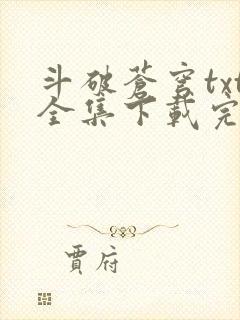 斗破苍穹txt
全集下载完
贾府